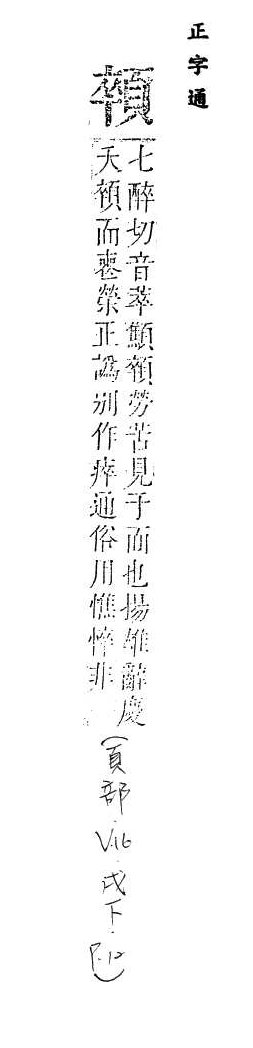 正字通
顇
七醉切音萃顦顇勞苦見于面也揚雄辭慶
夭顇而喪榮正譌別作瘁通俗用憔悴非
(頁部.V.16.戌下.P.12)